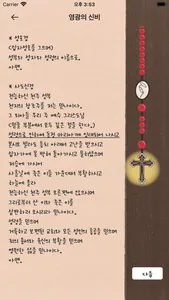 Carrier
오후 3:53
영광의 신비
* 성호경
(십자성호를 그으며)
성부와 성자와 성령의 이름으로,
아멘.
* 사도신경
전능하신 천주 성부
천지의 창조주를 저는 믿나이다.
그 외아들 우리 주 예수 그리스도님
(밑줄 부분에서 모두 깊은 절을 한다.)
성령으로 인하여 동정 마리아께 잉태되어 나시고
본시오 빌라도 통치 아래서 고난을 받으시고
십자가에 못 박혀 돌아가시고 묻히셨으며
저승에 가시어
사흗날에 죽은 이들 가운데서 부활하시고
하늘에 올라
전능하신 천주 성부 오른편에 앉으시며
그리로부터 산 이와 죽은 이를
심판하러 오시리라 믿나이다.
성령을 믿으며
거룩하고 보편된 교회와 모든 성인의 통공을 믿으며
죄의 용서와 육신의 부활을 믿으며
영원한 삶을 믿나이다.
아멘.
다음